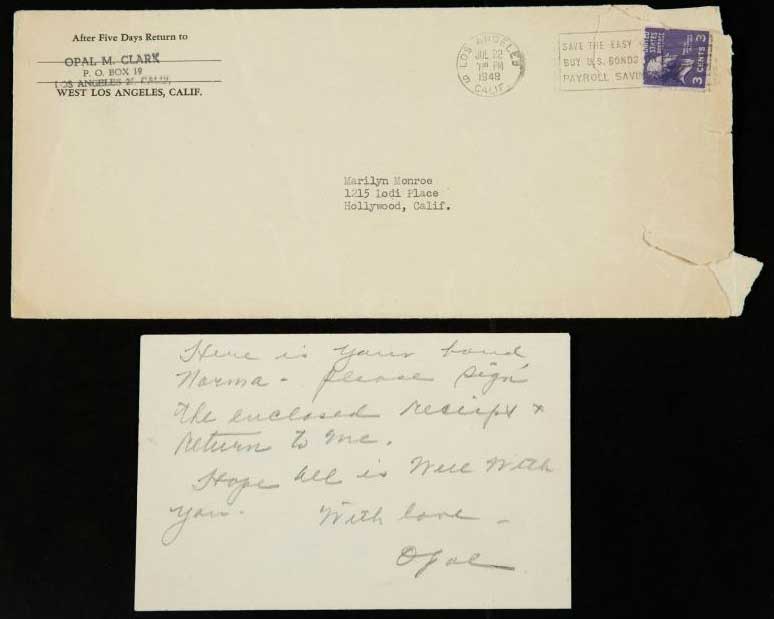 After Five Days Return to
OPAL M. CLARK
P. O. BOX 19
LOS ANGELES CALIF.
WEST LOS ANGELES, CALIF.
LOS ANGELES
JUL 22
PM
1948
CALIF.
SAVE THE EASY
BUY U.S. BONDS
PAYROLL SAVIN
3 CENTS 3
Marilyn Monroe
1215 Lodi Place
Hollywood, Calif.
Here is your bond
Norma - please sign
the enclosed receipt +
return to me.
Hope all is well with
you. With love -
Opal